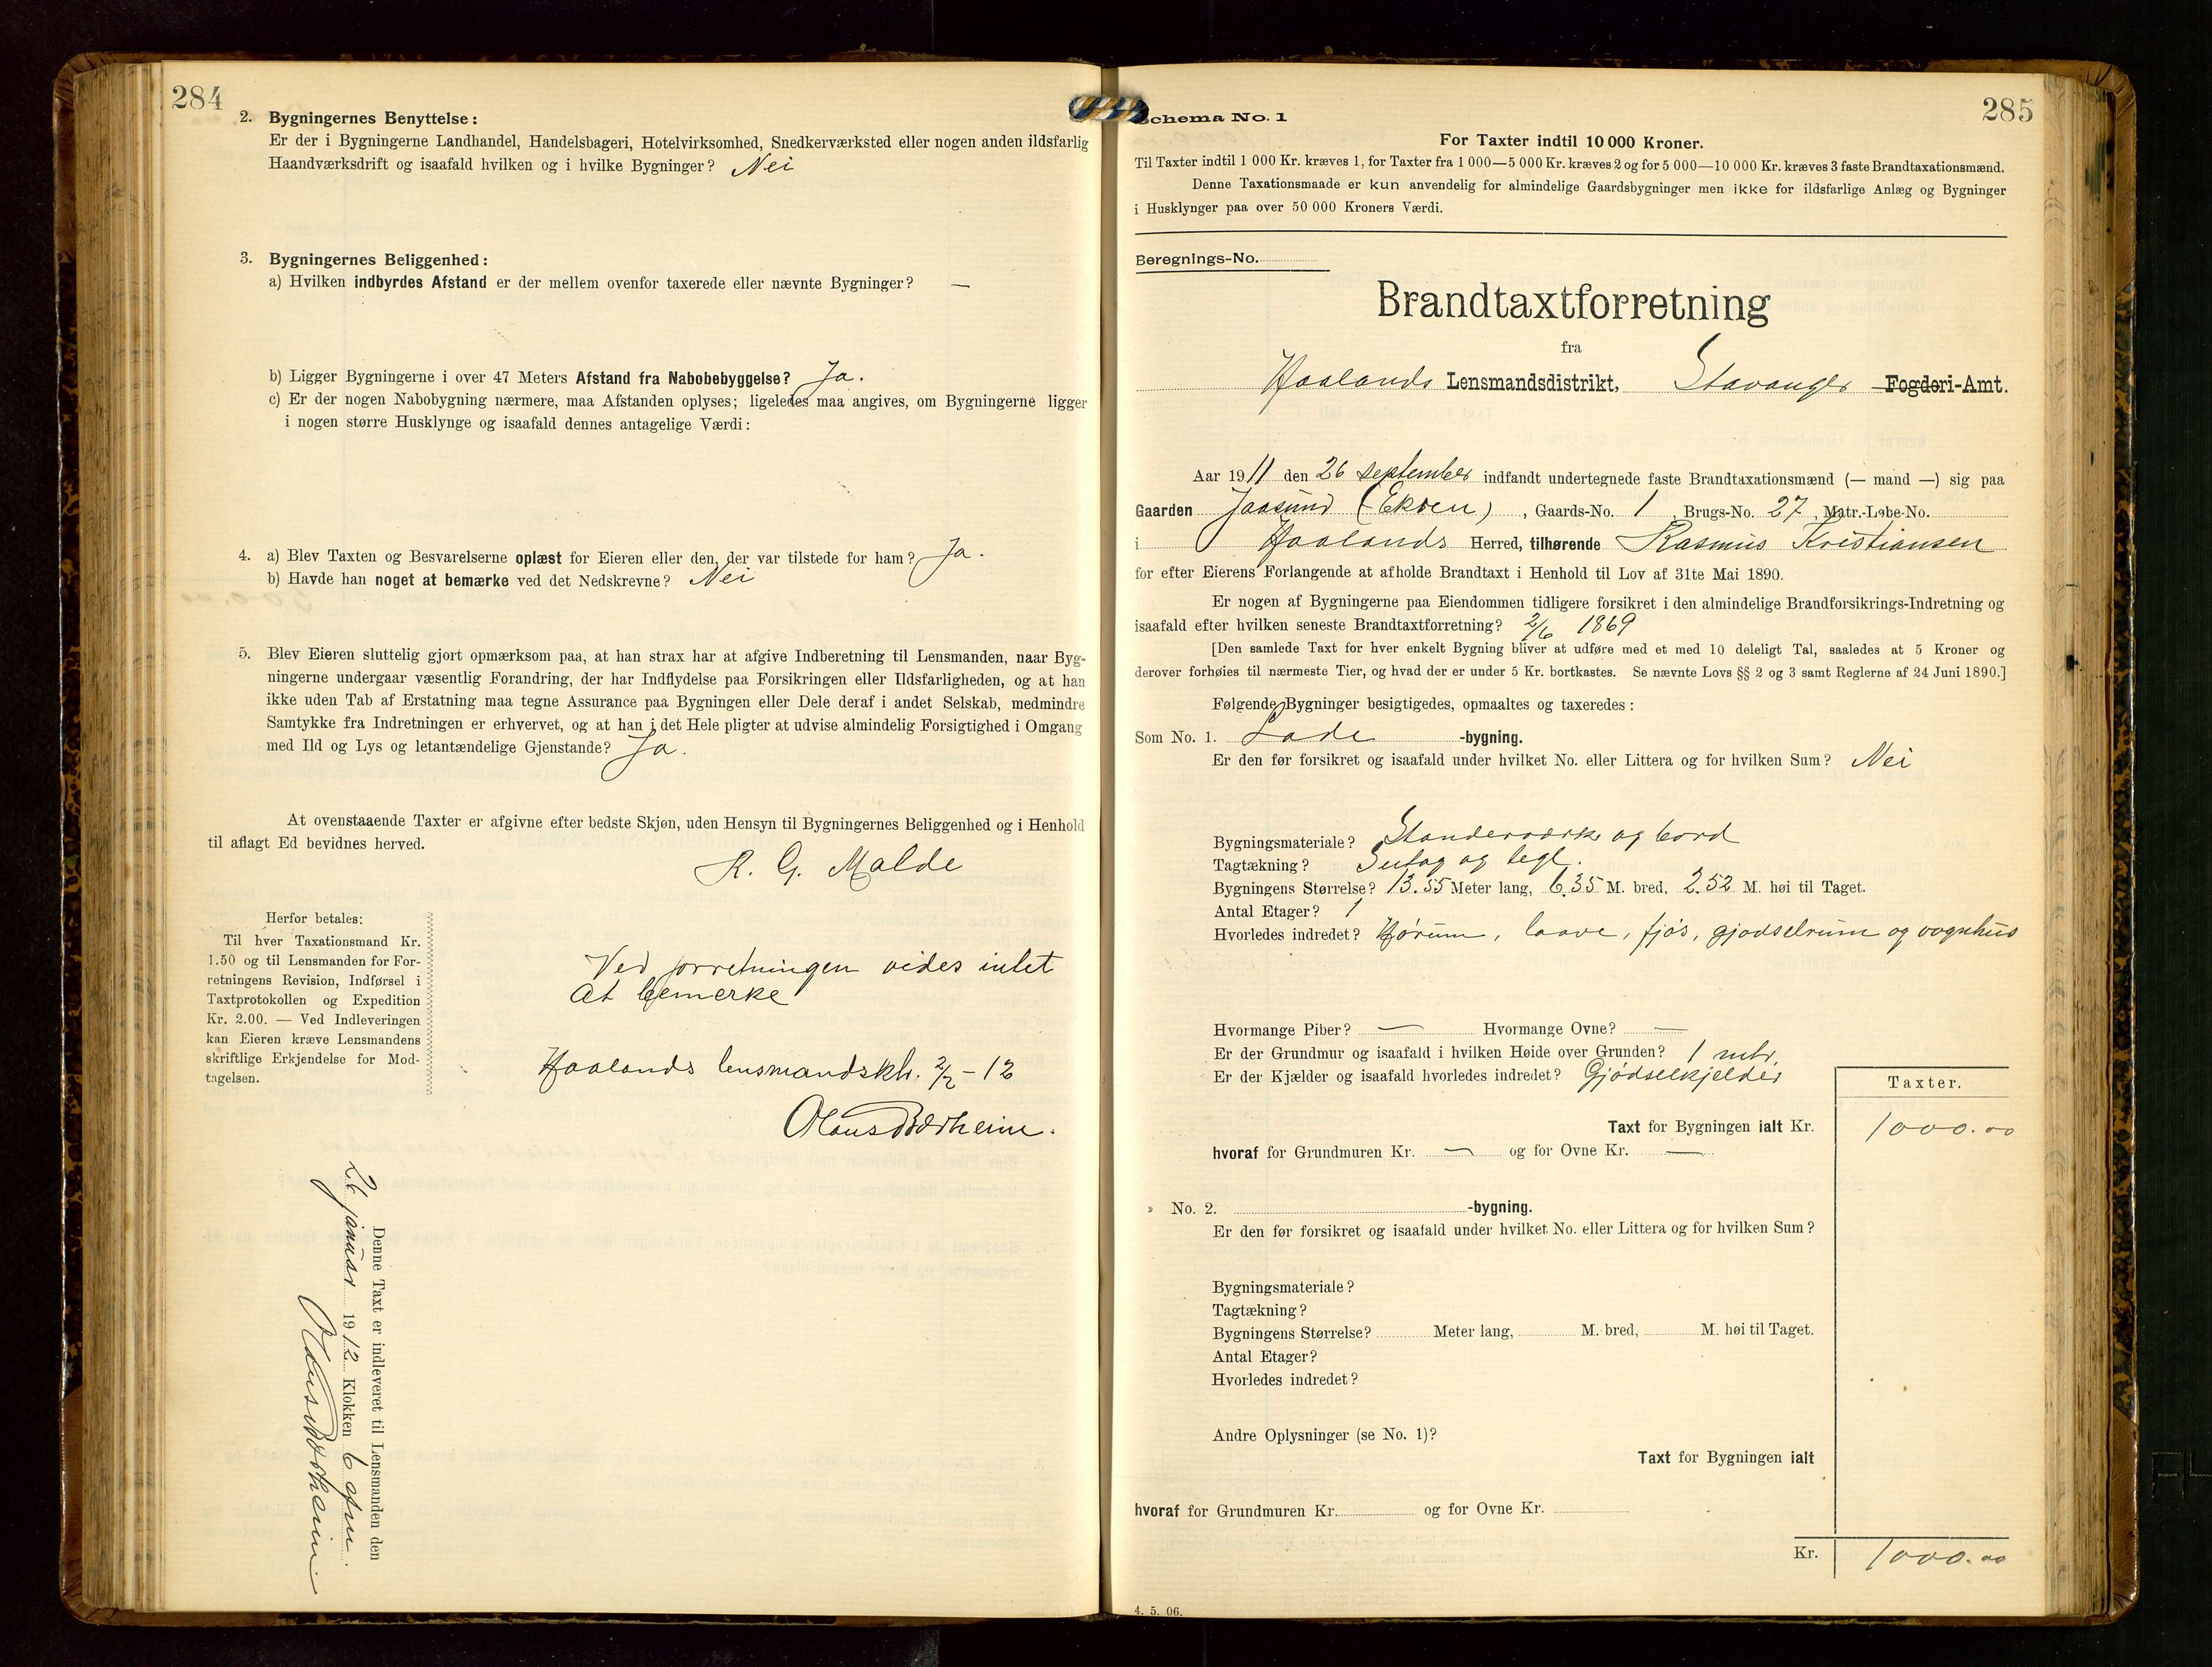 284
2. Bygningernes Benyttelse:
Er der i Bygningerne Landhandel, Handelsbageri, Hotelvirksomhed, Snedkerværksted eller nogen anden ildsfarlig
Haandværksdrift og isaafald hvilken og i hvilke Bygninger? Nei
3. Bygningernes Beliggenhed:
a) Hvilken indbyrdes Afstand er der mellem ovenfor taxerede eller nævnte Bygninger? —
b) Ligger Bygningerne i over 47 Meters Afstand fra Nabobebyggelse? Ja.
c) Er der nogen Nabobygning nærmere, maa Afstanden oplyses; ligeledes maa angives, om Bygningerne ligger
i nogen større Husklynge og isaafald dennes antagelige Værdi:
4. a) Blev Taxten og Besvarelserne oplæst for Eieren eller den, der var tilstede for ham? Ja.
b) Havde han noget at bemærke ved det Nedskrevne? Nei
5. Blev Eieren sluttelig gjort opmærksom paa, at han strax har at afgive Indberetning til Lensmanden, naar Byg-
ningerne undergaar væsentlig Forandring, der har Indflydelse paa Forsikringen eller Ildsfarligheden, og at han
ikke uden Tab af Erstatning maa tegne Assurance paa Bygningen eller Dele deraf i andet Selskab, medmindre
Samtykke fra Indretningen er erhvervet, og at han i det Hele pligter at udvise almindelig Forsigtighed i Omgang
med Ild og Lys og letantændelige Gjenstande? Ja.
At ovenstaaende Taxter er afgivne efter bedste Skjøn, uden Hensyn til Bygningernes Beliggenhed og i Henhold
til aflagt Ed bevidnes herved.
R. G. Malde
Herfor betales:
Til hver Taxationsmand Kr.
1.50 og til Lensmanden for For-
retningens Revision, Indførsel i
Taxtprotokollen og Expedition
Kr. 2.00. — Ved Indleveringen
kan Eieren kræve Lensmandens
skriftlige Erkjendelse for Mod-
tagelsen.
Ved forretningen vides intet
at bemerke
Haalands lensmandskt. 2/2 - 12
Olaus Børheim.
Denne Taxt er indleveret til Lensmanden den
26 januar 1912 Klokken 6 efm.
Olaus Børheim
285
Schema No. 1
For Taxter indtil 10 000 Kroner.
Til Taxter indtil 1 000 Kr. kræves 1, for Taxter fra 1 000—5 000 Kr. kræves 2 og for 5 000—10 000 Kr. kræves 3 faste Brandtaxationsmænd.
Denne Taxationsmaade er kun anvendelig for almindelige Gaardsbygninger men ikke for ildsfarlige Anlæg og Bygninger
i Husklynger paa over 50 000 Kroners Værdi.
Beregnings-No.
Brandtaxtforretning
fra
Haalands Lensmandsdistrikt, Stavanger Fogderi-Amt.
Aar 1911 den 26 september indfandt undertegnede faste Brandtaxationsmænd (— mand —) sig paa
Gaarden Jaasund (Ekren), Gaards-No. 1, Brugs-No. 27, Matr.-Løbe-No.
i Haalands Herred, tilhørende Rasmus Kristiansen
for efter Eierens Forlangende at afholde Brandtaxt i Henhold til Lov af 31te Mai 1890.
Er nogen af Bygningerne paa Eiendommen tidligere forsikret i den almindelige Brandforsikrings-Indretning og
isaafald efter hvilken seneste Brandtaxtforretning? 2/6 1869
[Den samlede Taxt for hver enkelt Bygning bliver at udføre med et med 10 deleligt Tal, saaledes at 5 Kroner og
derover forhøies til nærmeste Tier, og hvad der er under 5 Kr. bortkastes. Se nævnte Lovs §§ 2 og 3 samt Reglerne af 24 Juni 1890.]
Følgende Bygninger besigtigedes, opmaaltes og taxeredes:
Som No. 1. Lade -bygning.
Er den før forsikret og isaafald under hvilket No. eller Littera og for hvilken Sum? Nei
Bygningsmateriale? Standerværk og bord
Tagtækning? Sutag og tegl.
Bygningens Størrelse? 13.55 Meter lang, 6.35 M. bred, 2.52 M. høi til Taget.
Antal Etager? 1
Hvorledes indredet? Hørum, laave, fjøs, gjødselrum og vognhus
Hvormange Piber? — Hvormange Ovne? —
Er der Grundmur og isaafald i hvilken Høide over Grunden? 1 mtr.
Er der Kjælder og isaafald hvorledes indredet? Gjødselkjelder
Taxter.
Taxt for Bygningen ialt Kr. 1000.00
hvoraf for Grundmuren Kr. — og for Ovne Kr. —
» No. 2. -bygning.
Er den før forsikret og isaafald under hvilket No. eller Littera og for hvilken Sum?
Bygningsmateriale?
Tagtækning?
Bygningens Størrelse? Meter lang, M. bred, M. høi til Taget.
Antal Etager?
Hvorledes indredet?
Andre Oplysninger (se No. 1)?
Taxt for Bygningen ialt
hvoraf for Grundmuren Kr. og for Ovne Kr.
Kr. 1000.00
4. 5. 06.